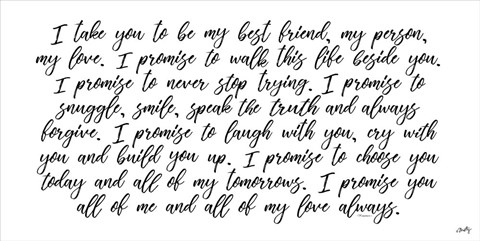 I take you to be my best friend, my person,
my love. I promise to walk this life beside you.
I promise to never stop trying. I promise to
snuggle, smile, speak the truth and always
forgive. I promise to laugh with you, cry with
you and build you up. I promise to choose you
today and all of my tomorrows. I promise you
all of me and all of my love always.